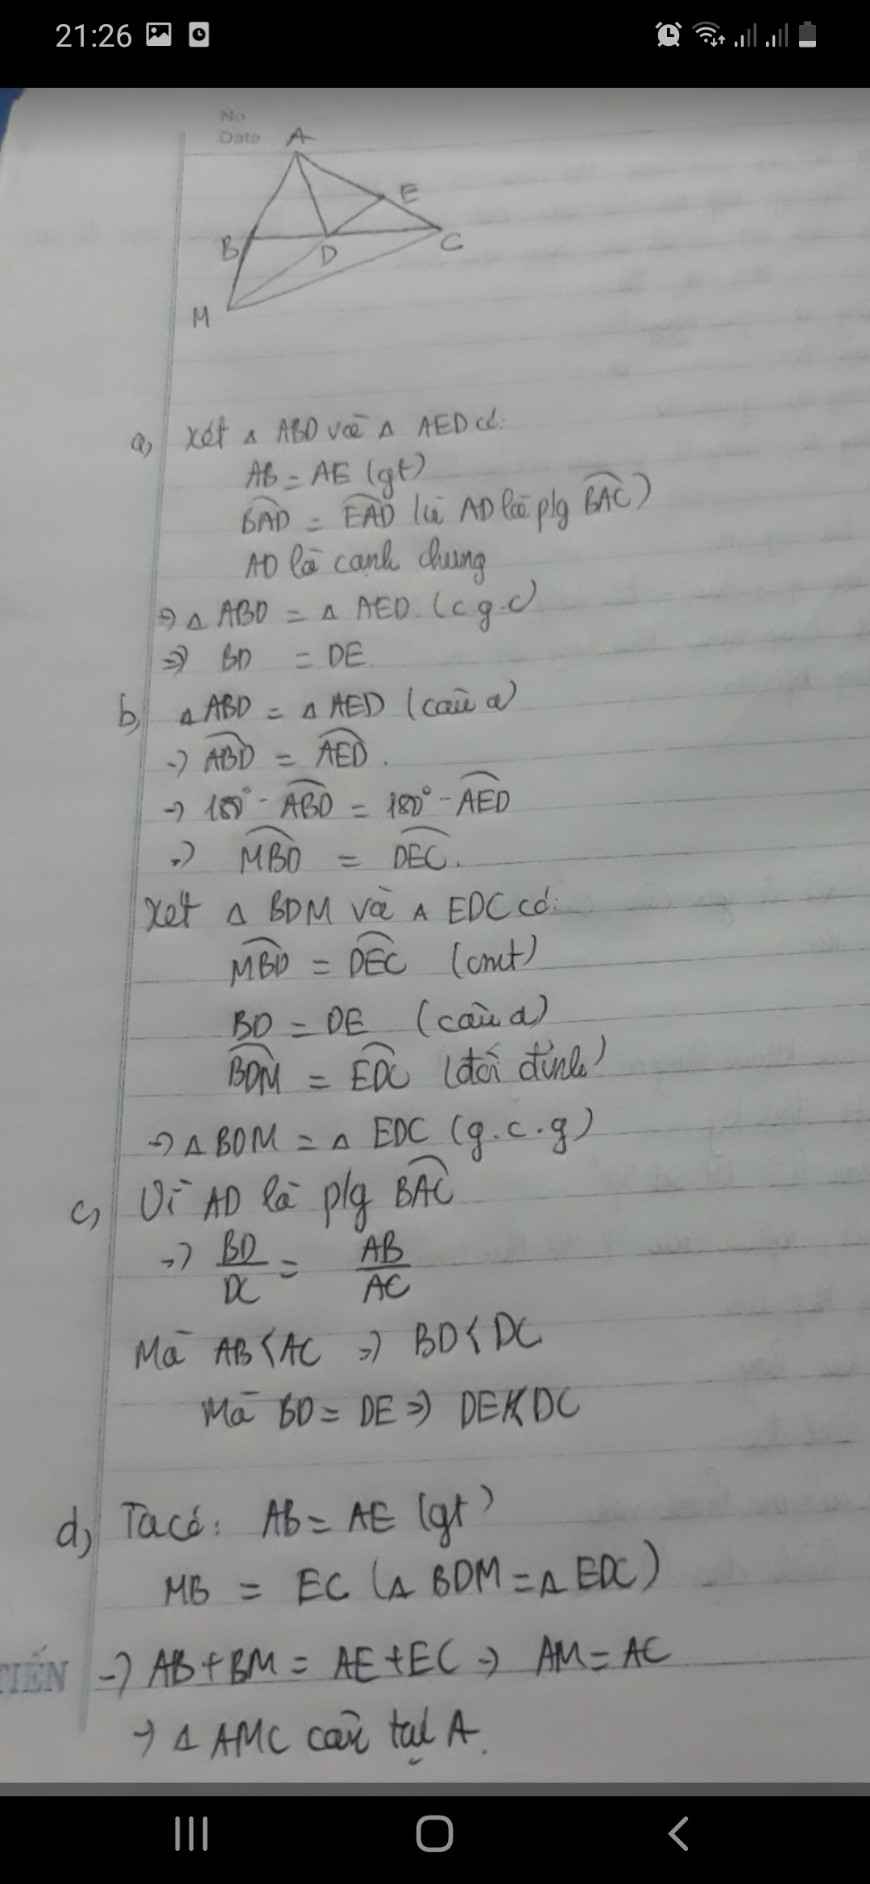 21:26
No
Date
A
E
B
D
C
M
a, Xét △ ABD và △ AED có:
AB = AE (gt)
BAD = EAD (vì AD là p/g BAC)
AD là cạnh chung
⇒ △ ABD = △ AED (c g.c)
⇒ BD = DE
b, △ ABD = △ AED (câu a)
→ ABD = AED.
→ 180° - ABD = 180° - AED
→ MBD = DEC.
Xét △ BDM và △ EDC có:
MBD = DEC (cmt)
BD = DE (câu a)
BDM = EDC (đối đỉnh)
→ △ BDM = △ EDC (g.c.g)
c, Vì AD là p/g BAC
→ BD/DC = AB/AC
Mà AB < AC ⇒ BD < DC
Mà BD = DE ⇒ DE < DC
d, Ta có: AB = AE (gt)
MB = EC (△ BDM = △ EDC)
TIẾN
→ AB + BM = AE + EC → AM = AC
→ △ AMC cân tại A.